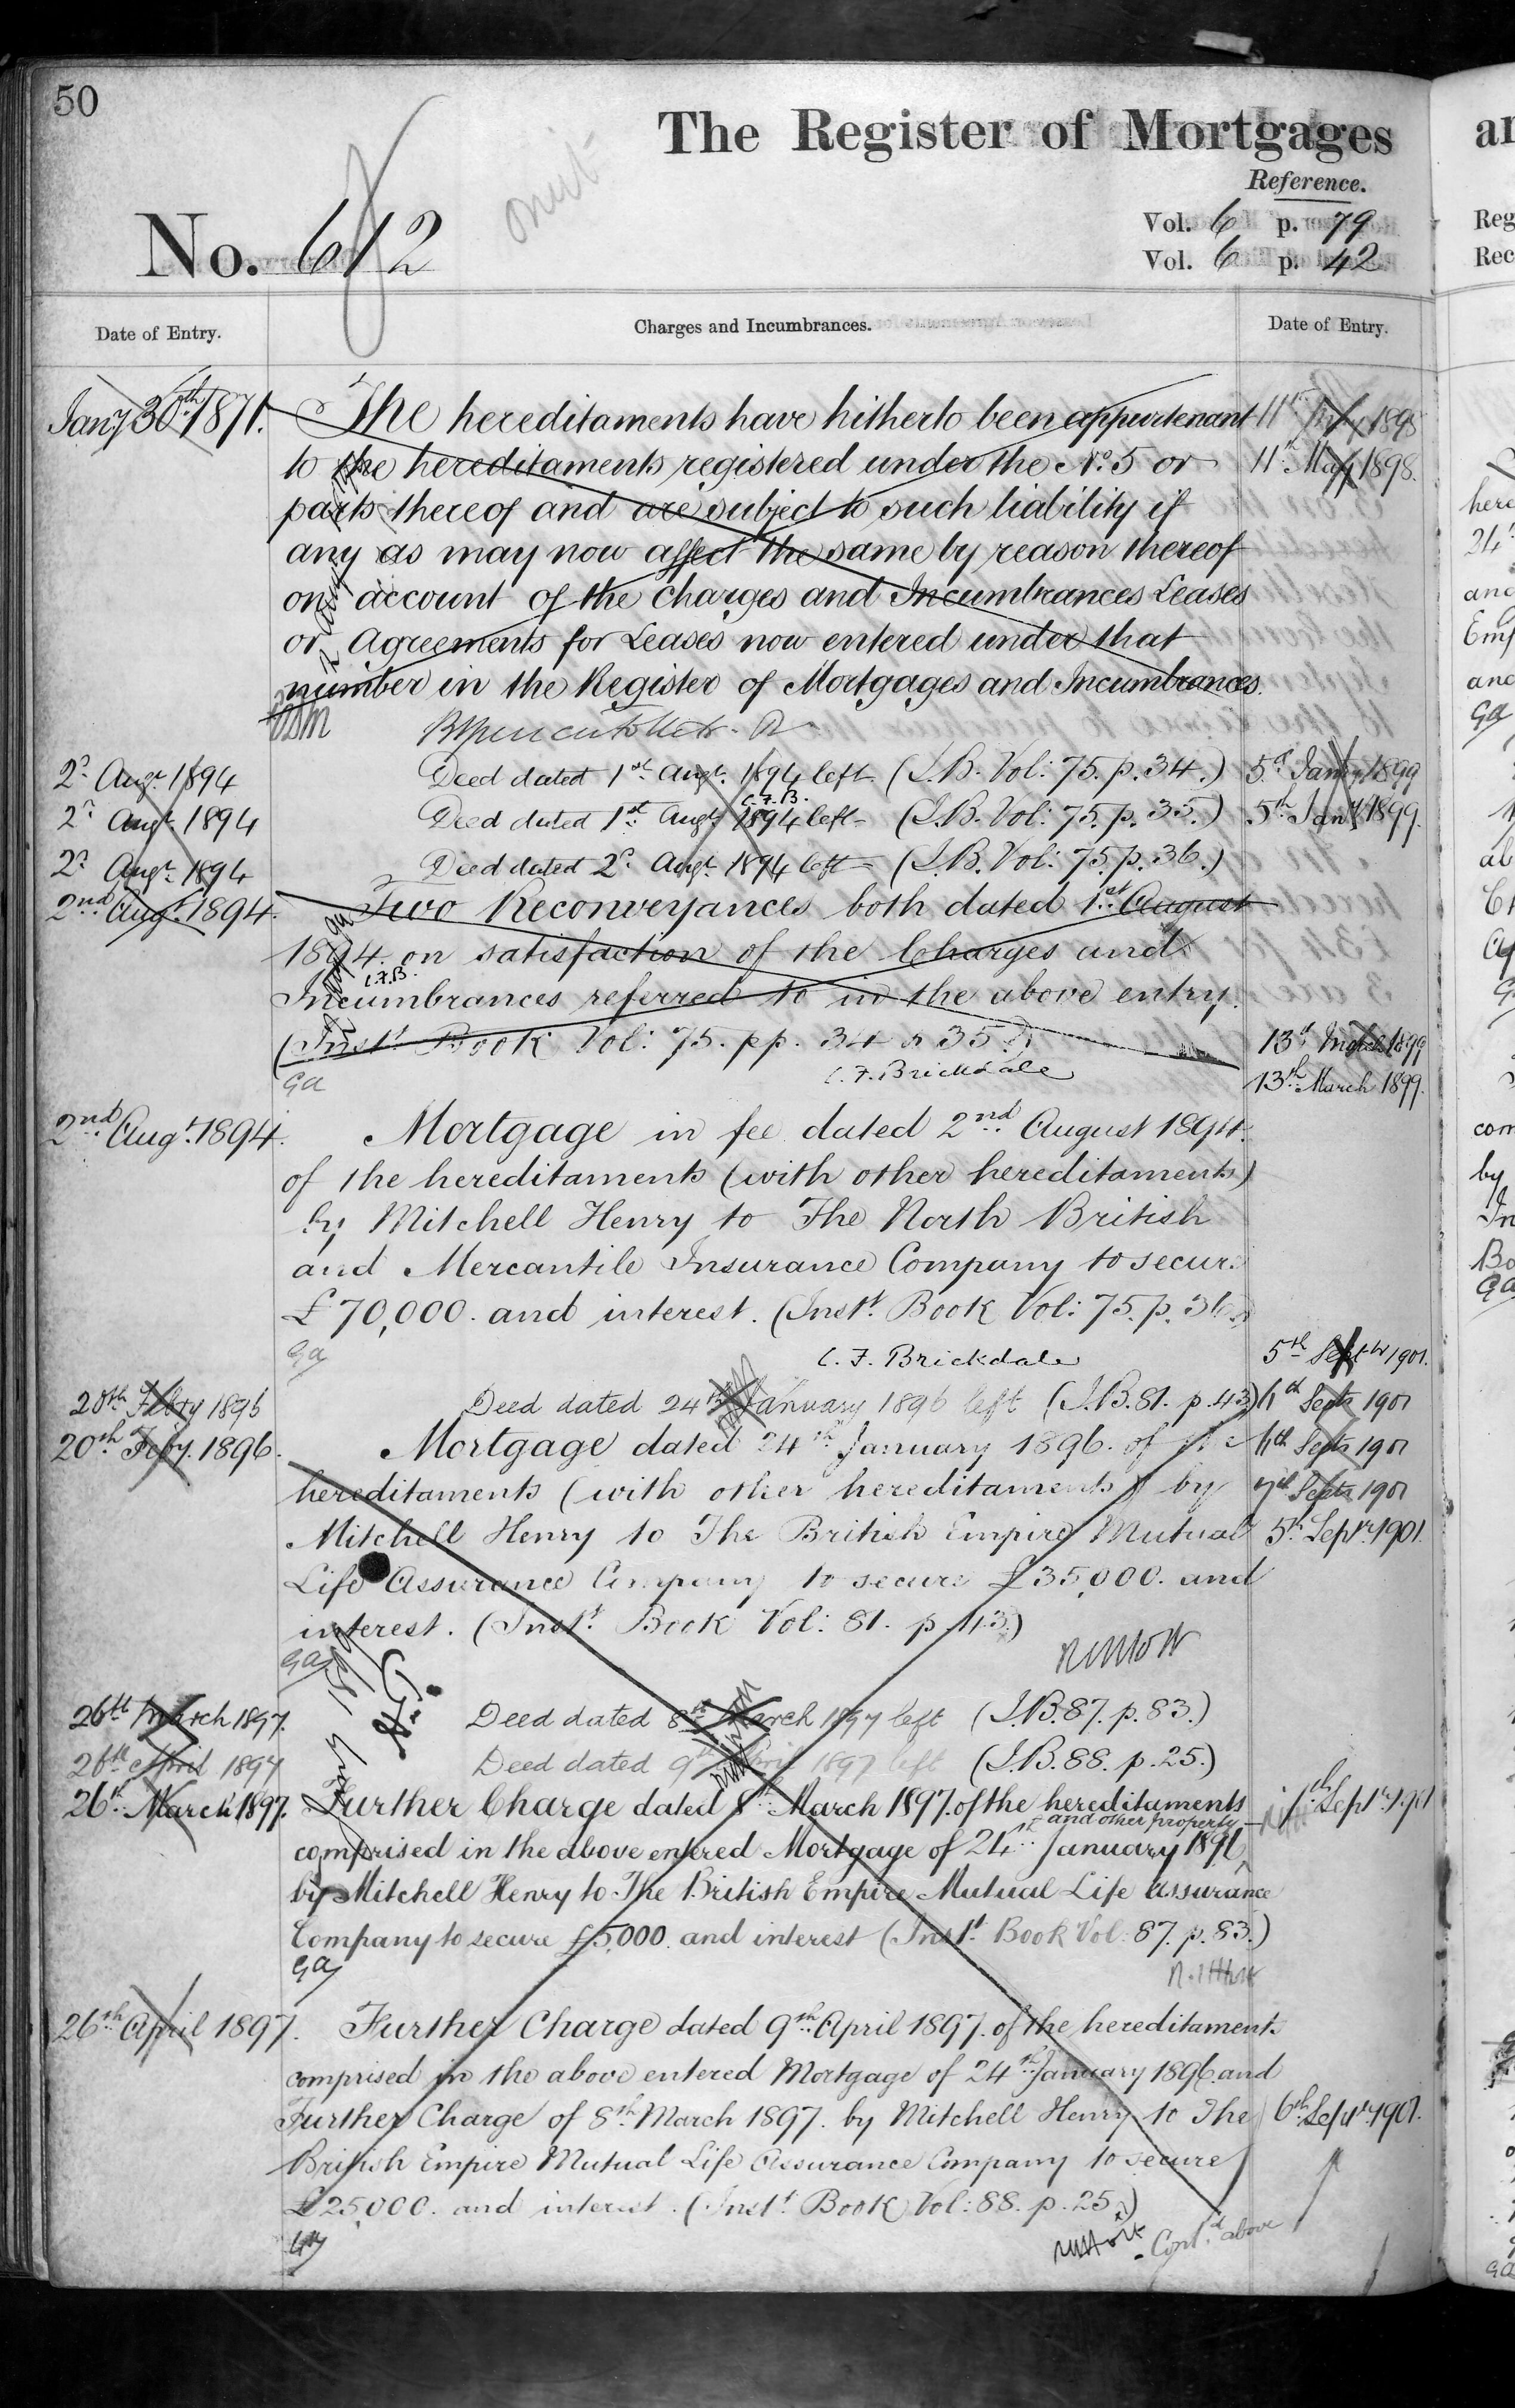 50
The Register of Mortgages
Reference.
omit
Vol. 6 p. 79
No. 612
Vol. 6 p. 42
Date of Entry.
Charges and Incumbrances.
Date of Entry.
Jany 30th 1871.
The hereditaments have hitherto been appurtenant
to the hereditaments registered under the No. 5 or
parts thereof and are subject to such liability if
any as may now affect the same by reason thereof
on account of the Charges and Incumbrances Leases
or Agreements for Leases now entered under that
number in the Register of Mortgages and Incumbrances.
2d Augt. 1894 Deed dated 1st Augt. 1894 left (I.B. Vol: 75. p. 34.)
C.F.B.
2d Augt. 1894 Deed dated 1st Augt. 1894 left (I.B. Vol: 75. p. 35.)
2d Augt. 1894 Deed dated 2d Augt. 1894 left (I.B. Vol: 75. p. 36.)
2nd Augt. 1894. Two Reconveyances both dated 1st August
1894. on satisfaction of the Charges and
C.F.B.
Incumbrances referred to in the above entry.
(Inst. Book Vol: 75. pp. 34 & 35.)
C. F. Brickdale
Ga
2nd Augt. 1894. Mortgage in fee dated 2nd August 1894.
of the hereditaments (with other hereditaments)
by Mitchell Henry to The North British
and Mercantile Insurance Company to secure
£70,000. and interest. (Inst. Book Vol: 75. p. 36.)
Ga
C. F. Brickdale
20th Febry 1896 Deed dated 24th January 1896 left (I.B. 81. p. 43)
20th Feby. 1896. Mortgage dated 24th January 1896. of the
hereditaments (with other hereditaments) by
Mitchell Henry to The British Empire Mutual
Life Assurance Company to secure £35,000. and
interest. (Inst. Book Vol: 81. p. 43.)
Ga
26th March 1897. Deed dated 8th March 1897 left (I.B. 87. p. 83.)
26th April 1897 Deed dated 9th April 1897 left (I.B. 88. p. 25.)
26th March 1897. Further Charge dated 8th March 1897. of the hereditaments
and other property
comprised in the above entered Mortgage of 24th January 1896
by Mitchell Henry to The British Empire Mutual Life Assurance
Company to secure £5,000. and interest (Inst. Book Vol. 87. p. 83.)
Ga
26th April 1897. Further Charge dated 9th April 1897. of the hereditaments
comprised in the above entered Mortgage of 24th January 1896 and
Further Charge of 8th March 1897. by Mitchell Henry to The
British Empire Mutual Life Assurance Company to secure
£25,000. and interest. (Inst. Book Vol: 88. p. 25.)
Ga
Contd. above
11th May 1898
11th May 1898.
5th Jany 1899
5th Jany 1899.
13th March 1899
13th March 1899.
5th Septr 1901.
6th Septr 1901
6th Septr 1901
7th Septr 1901
5th Septr. 1901.
7th Septr. 1901
6th Septr. 1901.
an
Reg
Rec